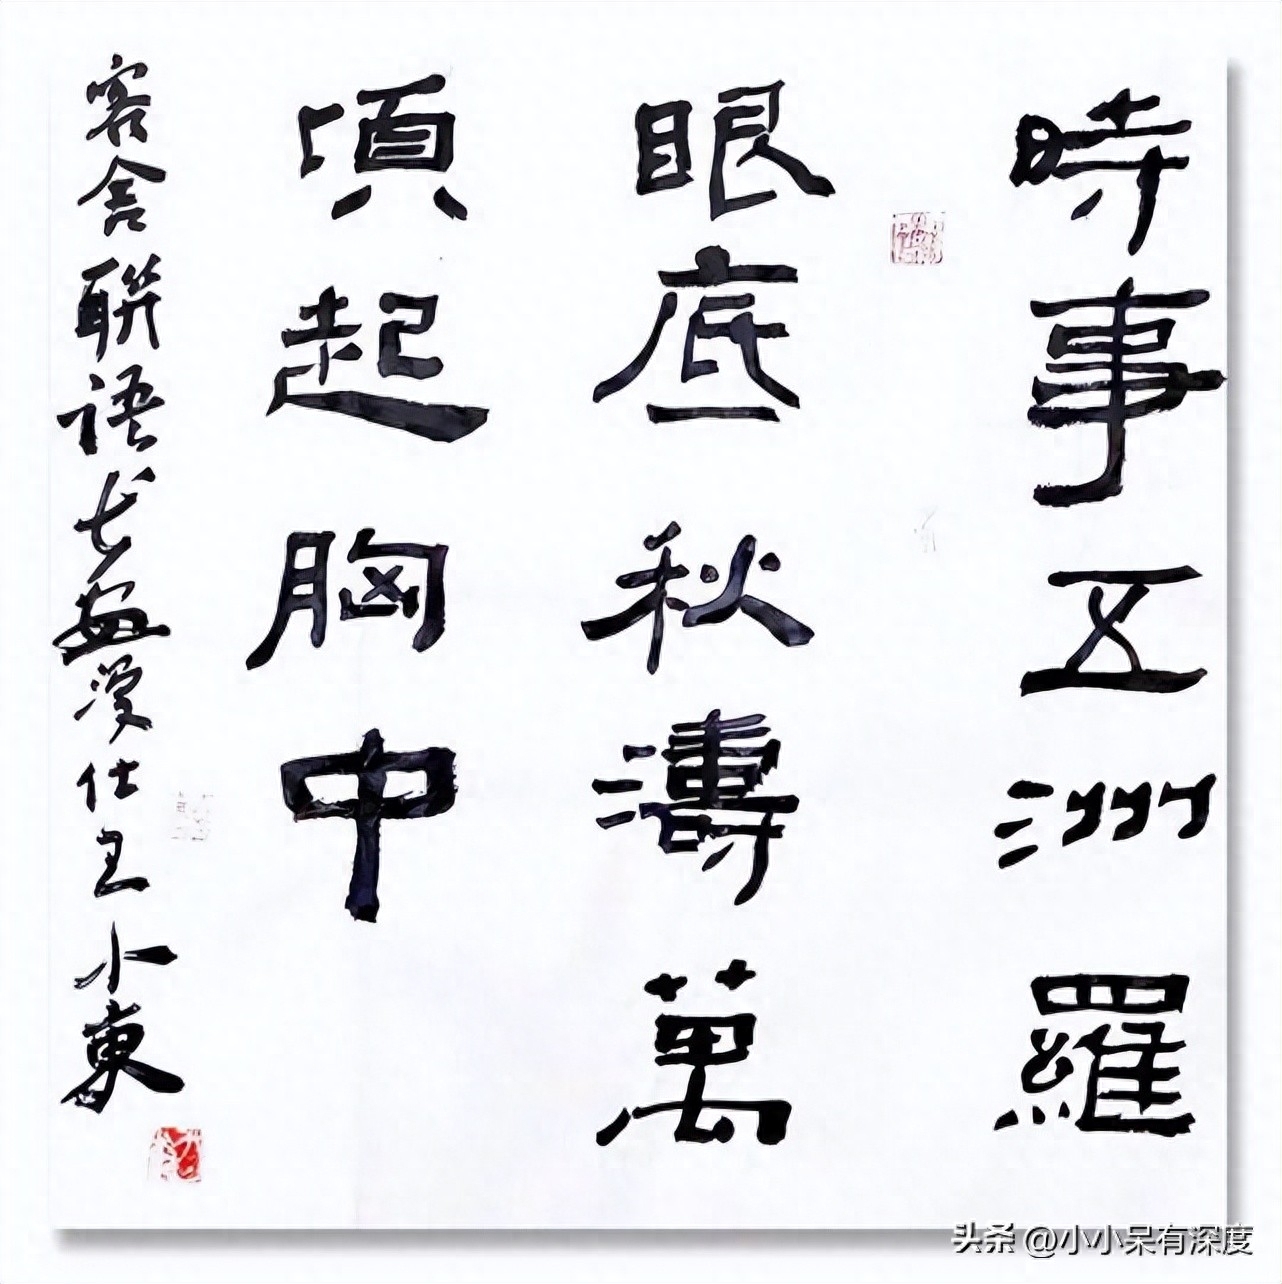 時事五洲羅
眼底秋濤萬
頃起胸中
客舍聯語仕王小東
头条 @小小呆有深度